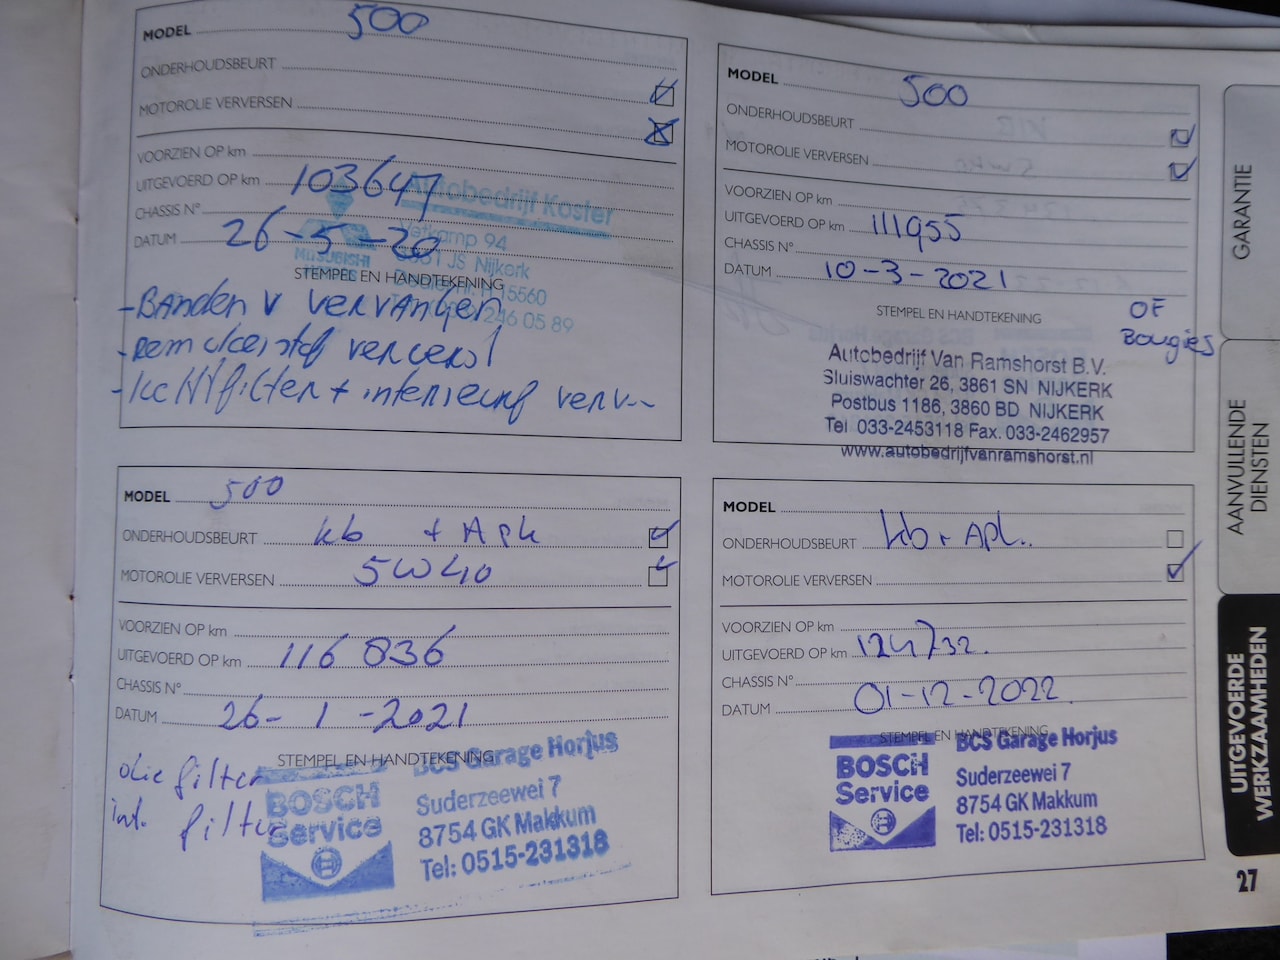 MODEL 500
ONDERHOUDSBEURT
MOTOROLIE VERVERSEN
VOORZIEN OP km
UITGEVOERD OP km 103647
CHASSIS N°
DATUM 26-5-20
Autobedrijf Koster
94
JS Nijkerk
15560
246 05 89
MITSUBISHI
STEMPEL EN HANDTEKENING
- BANden V VervANgen
- remvloeistof ververst
- luchtfilter + interieurf verv--
MODEL 500
ONDERHOUDSBEURT
MOTOROLIE VERVERSEN
VOORZIEN OP km
UITGEVOERD OP km 111955
CHASSIS N°
DATUM 10-3-2021
STEMPEL EN HANDTEKENING
OF
Bougies
Autobedrijf Van Ramshorst B.V.
Sluiswachter 26, 3861 SN NIJKERK
Postbus 1186, 3860 BD NIJKERK
Tel 033-2453118 Fax. 033-2462957
www.autobedrijfvanramshorst.nl
MODEL 500
ONDERHOUDSBEURT kb + Apk
MOTOROLIE VERVERSEN 5W40
VOORZIEN OP km
UITGEVOERD OP km 116 836
CHASSIS N°
DATUM 26-1-2021
STEMPEL EN HANDTEKENING
olie filter
int. filter
BOSCH
Service
BCS Garage Horjus
Suderzeewei 7
8754 GK Makkum
Tel: 0515-231318
MODEL
ONDERHOUDSBEURT kb + Apk..
MOTOROLIE VERVERSEN
VOORZIEN OP km
UITGEVOERD OP km 124732.
CHASSIS N°
DATUM 01-12-2022
STEMPEL EN HANDTEKENING
BOSCH
Service
BCS Garage Horjus
Suderzeewei 7
8754 GK Makkum
Tel: 0515-231318
GARANTIE
AANVULLENDE
DIENSTEN
UITGEVOERDE
WERKZAAMHEDEN
27